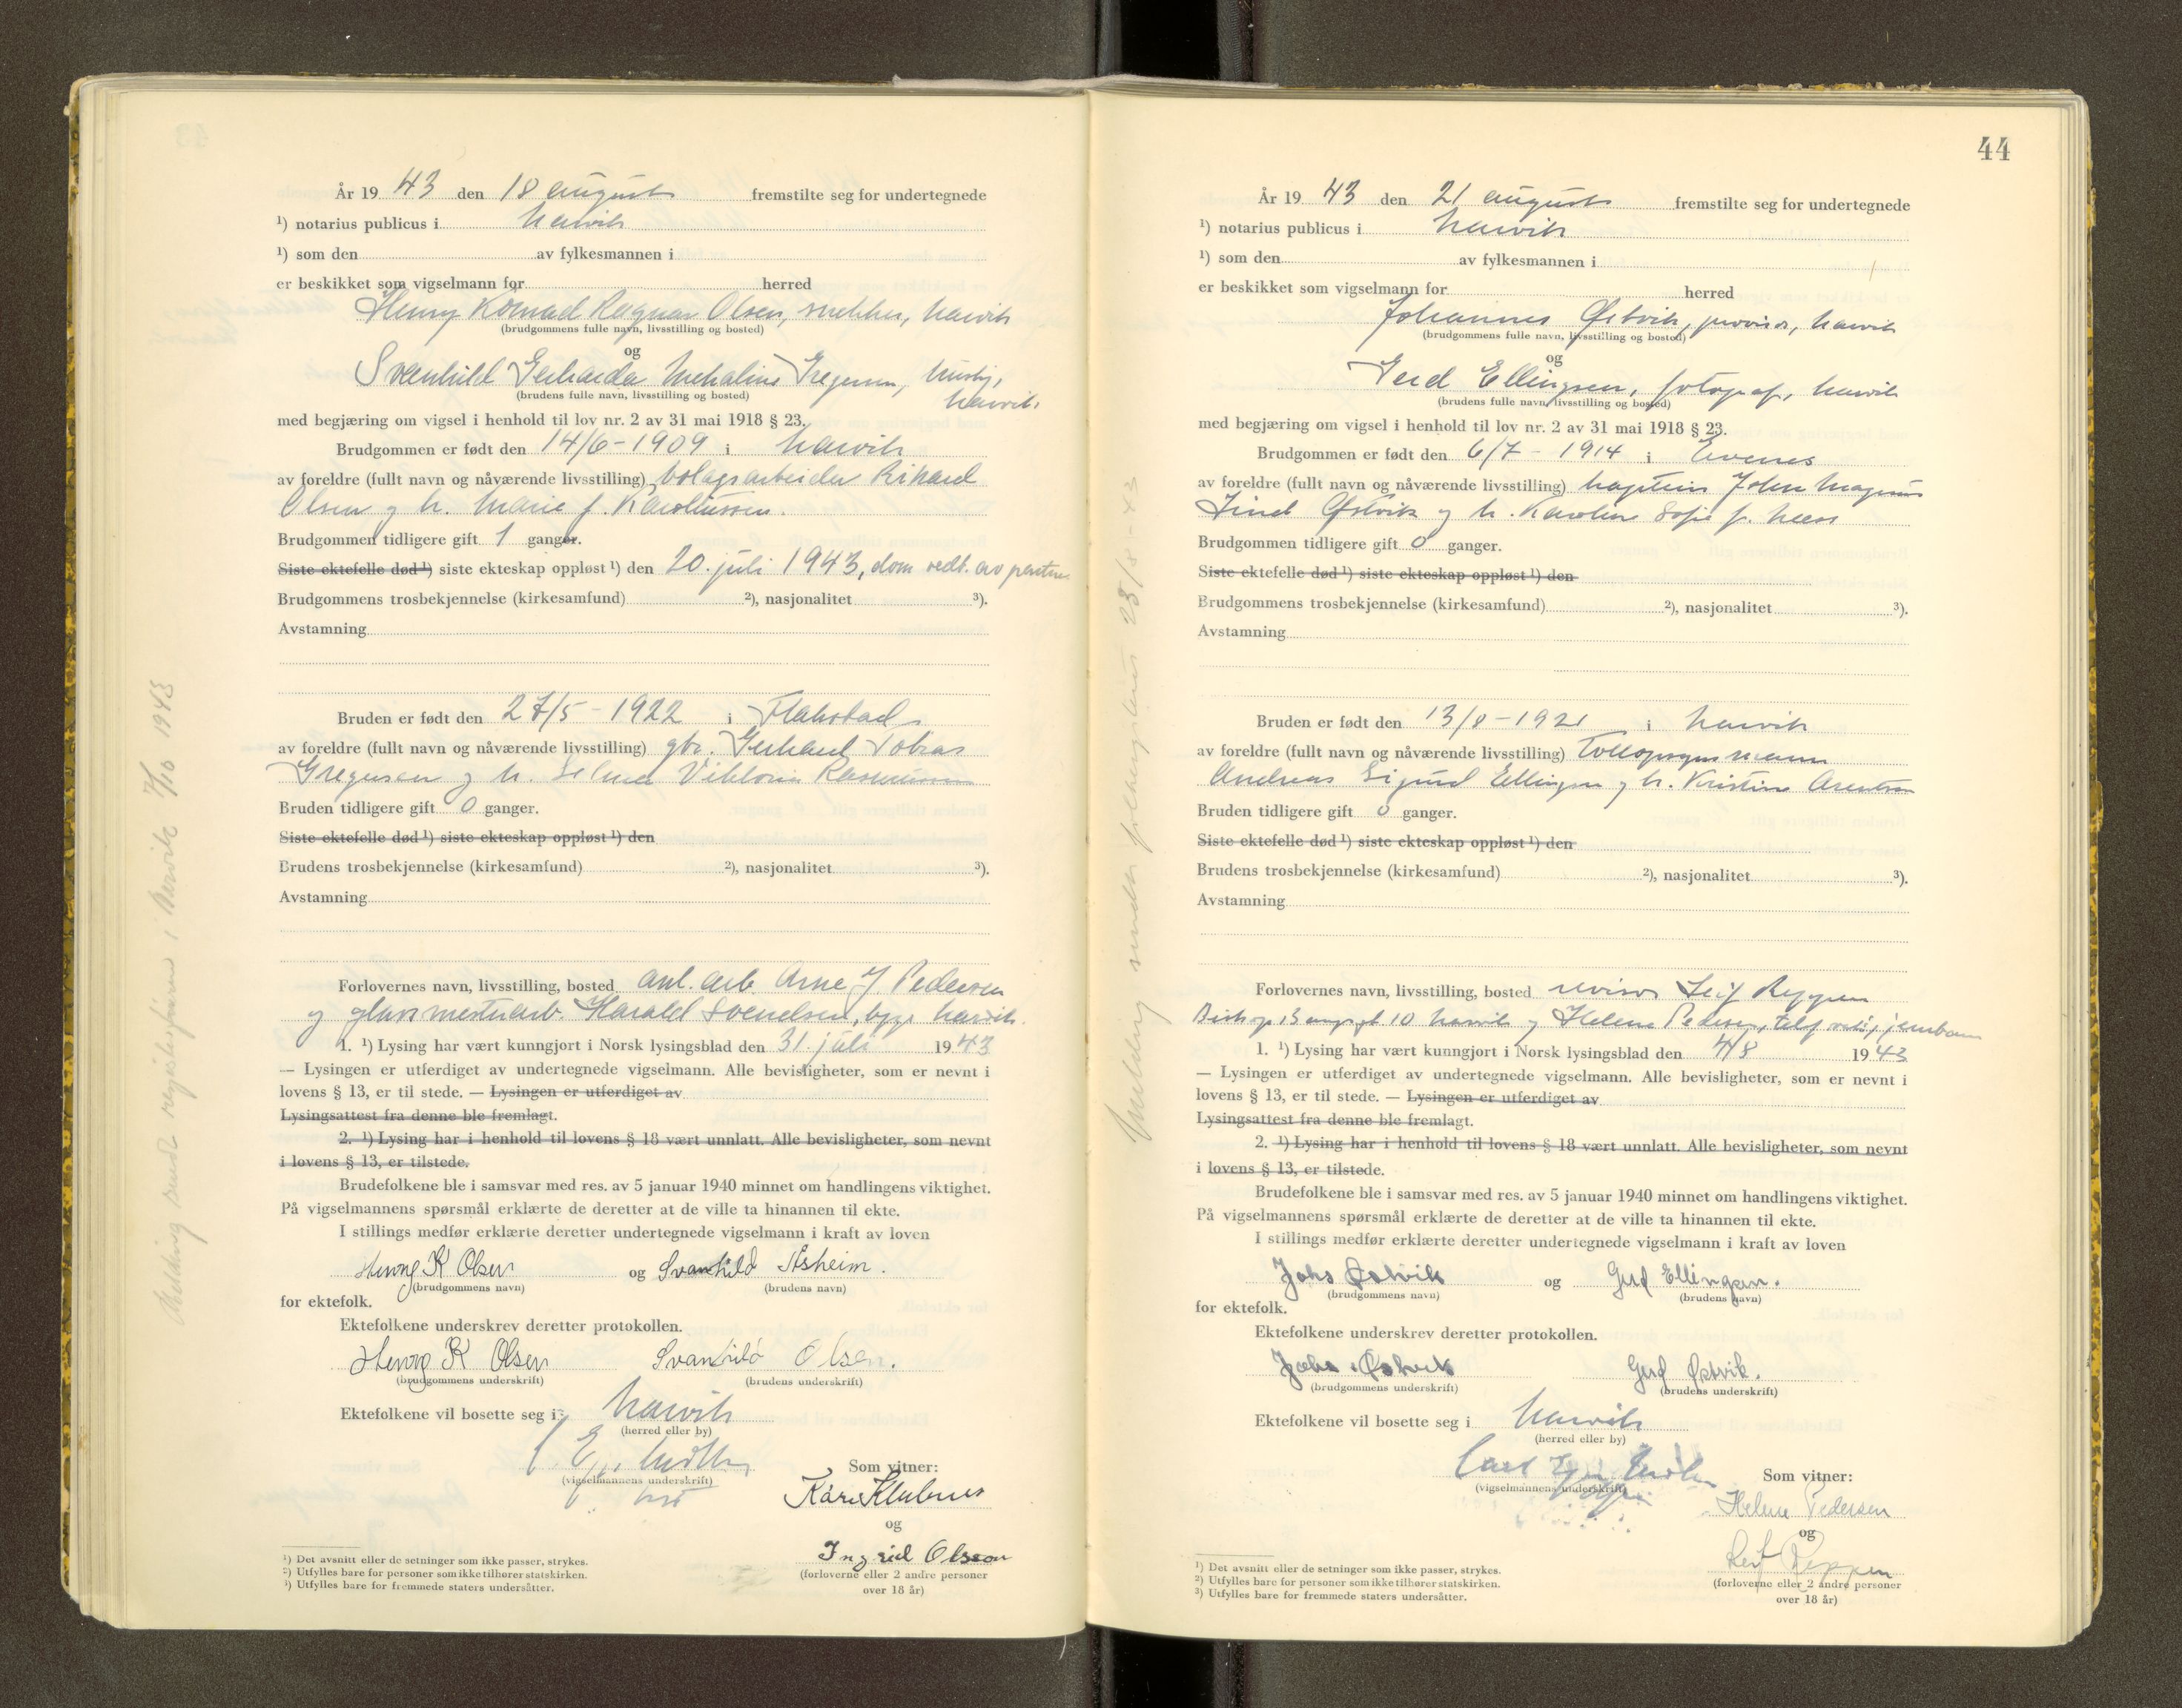 År 19 43 den 18 august fremstilte seg for undertegnede
¹) notarius publicus i Narvik
¹) som den av fylkesmannen i
er beskikket som vigselmann for herred
Henry Konrad Ragnar Olsen, snekker, Narvik
(brudgommens fulle navn, livsstilling og bosted)
og
Svanhild Gerharda Mekaline Gregersen, Narvik.
(brudens fulle navn, livsstilling og bosted)
med begjæring om vigsel i henhold til lov nr. 2 av 31 mai 1918 § 23.
Brudgommen er født den 14/6-1909 i Narvik
av foreldre (fullt navn og nåværende livsstilling) bolagsarbeider Rikard
Olsen og h. Marie f. Karoliussen.
Brudgommen tidligere gift 1 ganger.
Siste ektefelle død ¹) siste ekteskap oppløst ¹) den 20. juli 1943, dom vedt. av partene
Brudgommens trosbekjennelse (kirkesamfund) ²), nasjonalitet ³).
Avstamning
Bruden er født den 27/5-1922 i Flakstad
av foreldre (fullt navn og nåværende livsstilling) gbr. Gerhard Tobias
Gregersen og h. Selma Viktoria Rasmussen
Bruden tidligere gift 0 ganger.
Siste ektefelle død ¹) siste ekteskap oppløst ¹) den
Brudens trosbekjennelse (kirkesamfund) ²), nasjonalitet ³).
Avstamning
Forlovernes navn, livsstilling, bosted anl. arb. Arne J Pedersen
og glassmesterarb. Harald Svendsen, begge Narvik.
1. ¹) Lysing har vært kunngjort i Norsk lysingsblad den 31. juli 1943
— Lysingen er utferdiget av undertegnede vigselmann. Alle bevisligheter, som er nevnt i
lovens § 13, er til stede. — Lysingen er utferdiget av
Lysingsattest fra denne ble fremlagt.
2. ¹) Lysing har i henhold til lovens § 18 vært unnlatt. Alle bevisligheter, som nevnt
i lovens § 13, er tilstede.
Brudefolkene ble i samsvar med res. av 5 januar 1940 minnet om handlingens viktighet.
På vigselmannens spørsmål erklærte de deretter at de ville ta hinannen til ekte.
I stillings medfør erklærte deretter undertegnede vigselmann i kraft av loven
Henry K Olsen og Svanhild Åsheim.
(brudgommens navn) (brudens navn)
for ektefolk.
Ektefolkene underskrev deretter protokollen.
Henry K Olsen Svanhild Olsen.
(brudgommens underskrift) (brudens underskrift)
Ektefolkene vil bosette seg i Narvik
(herred eller by)
(vigselmannens underskrift) Som vitner:
Kåre Klubnes
og
Ingrid Olsson
(forloverne eller 2 andre personer
over 18 år)
¹) Det avsnitt eller de setninger som ikke passer, strykes.
²) Utfylles bare for personer som ikke tilhører statskirken.
³) Utfylles bare for fremmede staters undersåtter.
Melding sendt registerføreren i Narvik 7/10 1943
44
År 19 43 den 21 august fremstilte seg for undertegnede
¹) notarius publicus i Narvik
¹) som den av fylkesmannen i
er beskikket som vigselmann for herred
Johannes Østvik, provisor, Narvik
(brudgommens fulle navn, livsstilling og bosted)
og
Gerd Ellingsen, fotograf, Narvik
(brudens fulle navn, livsstilling og bosted)
med begjæring om vigsel i henhold til lov nr. 2 av 31 mai 1918 § 23.
Brudgommen er født den 6/7-1914 i Evenes
av foreldre (fullt navn og nåværende livsstilling) kaptein Johan Magnus
Østvik og h. Karoline Sofie f.
Brudgommen tidligere gift 0 ganger.
Siste ektefelle død ¹) siste ekteskap oppløst ¹) den
Brudgommens trosbekjennelse (kirkesamfund) ²), nasjonalitet ³).
Avstamning
Bruden er født den 13/8-1921 i Narvik
av foreldre (fullt navn og nåværende livsstilling) Tollopsynsmann
Andreas Sigurd Ellingsen og h. Kristine Arentsen
Bruden tidligere gift 0 ganger.
Siste ektefelle død ¹) siste ekteskap oppløst ¹) den
Brudens trosbekjennelse (kirkesamfund) ²), nasjonalitet ³).
Avstamning
Forlovernes navn, livsstilling, bosted revisor Leif Reppen
10 Narvik og Helene Pedersen,
1. ¹) Lysing har vært kunngjort i Norsk lysingsblad den 4/8 1943
— Lysingen er utferdiget av undertegnede vigselmann. Alle bevisligheter, som er nevnt i
lovens § 13, er til stede. — Lysingen er utferdiget av
Lysingsattest fra denne ble fremlagt.
2. ¹) Lysing har i henhold til lovens § 18 vært unnlatt. Alle bevisligheter, som nevnt
i lovens § 13, er tilstede.
Brudefolkene ble i samsvar med res. av 5 januar 1940 minnet om handlingens viktighet.
På vigselmannens spørsmål erklærte de deretter at de ville ta hinannen til ekte.
I stillings medfør erklærte deretter undertegnede vigselmann i kraft av loven
Johs Østvik og Gerd Ellingsen.
(brudgommens navn) (brudens navn)
for ektefolk.
Ektefolkene underskrev deretter protokollen.
Johs Østvik Gerd Østvik.
(brudgommens underskrift) (brudens underskrift)
Ektefolkene vil bosette seg i Narvik
(herred eller by)
Carl
(vigselmannens underskrift) Som vitner:
Helene Pedersen
og
Leif Reppen
(forloverne eller 2 andre personer
over 18 år)
¹) Det avsnitt eller de setninger som ikke passer, strykes.
²) Utfylles bare for personer som ikke tilhører statskirken.
³) Utfylles bare for fremmede staters undersåtter.
Melding sendt folkeregisteret 23/8-43